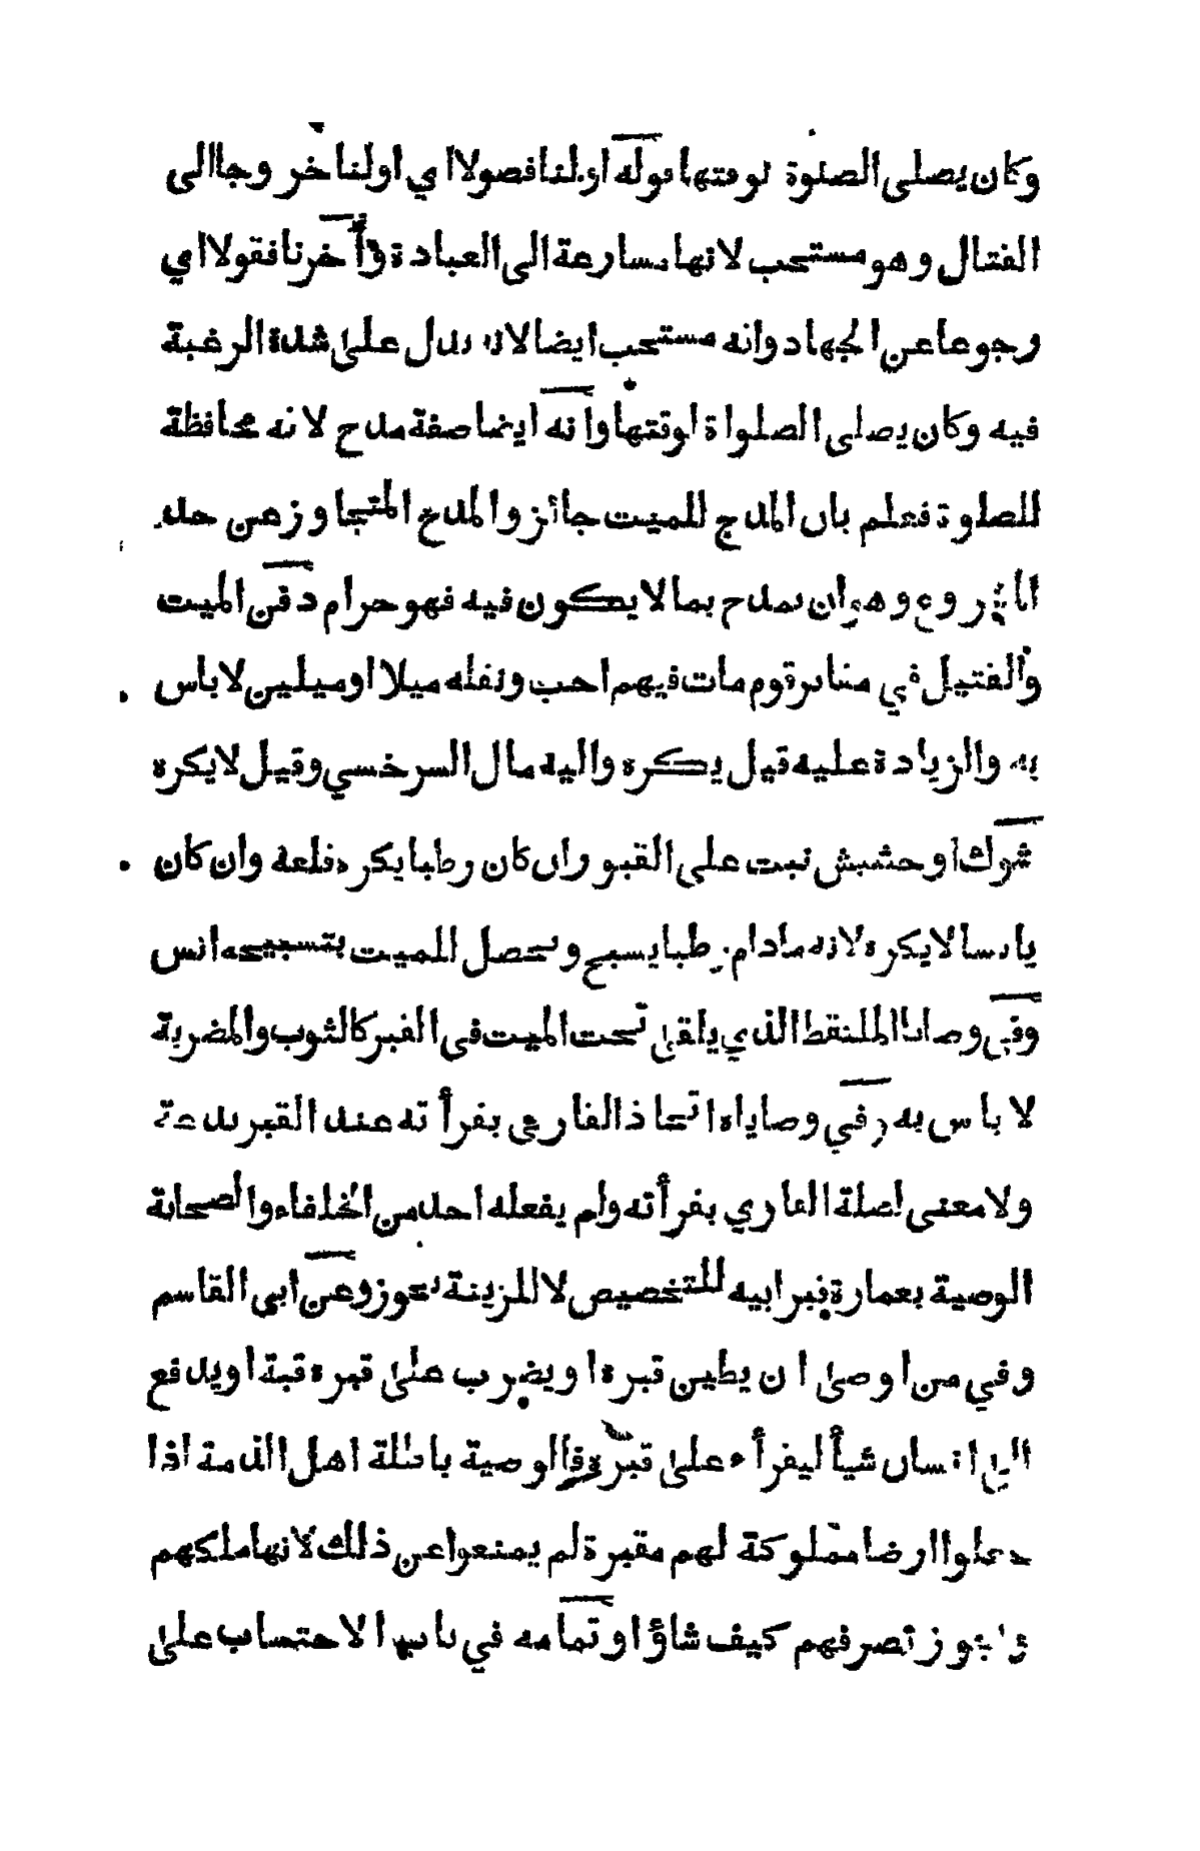 وكان يصلى الصلوة لوقتها قوله اولنا فصولا اي اولنا خر وجا الى
القتال و هو مستحب لانها مسارعة الى العبادة وأخرنا فقولا اي
رجوعا عن الجهاد وانه مستحب ايضا لانه يدل على شدة الرغبة
فيه وكان يصلى الصلواة لوقتها وانه ايضا صفة مدح لانه محافظة
للصلوة فعلم بان المدح للميت جائز والمدح المتجاوز عن حده
المشروع و هو ان يمدح بما لا يكون فيه فهو حرام دفن الميت
والقتيل في مقابر قوم مات فيهم احب ونقله ميلا او ميلين لا باس
به والزيادة عليه قيل يكره واليه مال السرخسي وقيل لا يكره
شوك او حشيش نبت على القبر وان كان رطبا يكره قلعه وان كان
يابسا لا يكره لانه مادام رطبا يسبح و يحصل للميت بتسبيحه انس
وفي وصايا الملتقط الذي يلقى تحت الميت فى القبر كالثوب والمضربة
لا باس به وفي وصاياه اتخاذ القاري بقرأته عند القبر بدعة
ولا معنى لصلة القاري بقرأته ولم يفعله احد من الخلفاء والصحابة
الوصية بعمارة قبر ابيه للتخصيص لا للزينة يجوز وعن ابي القاسم
وفي من اوصى ان يطين قبره او يضرب على قبره قبة او يدفع
الى انسان شيأ ليقرأ على قبره فالوصية باطلة اهل الذمة اذا
جعلوا ارضا مملوكة لهم مقبرة لم يمنعوا عن ذلك لانها ملكهم
ويجوز تصرفهم كيف شاؤا و تمامه في باب الاحتساب على